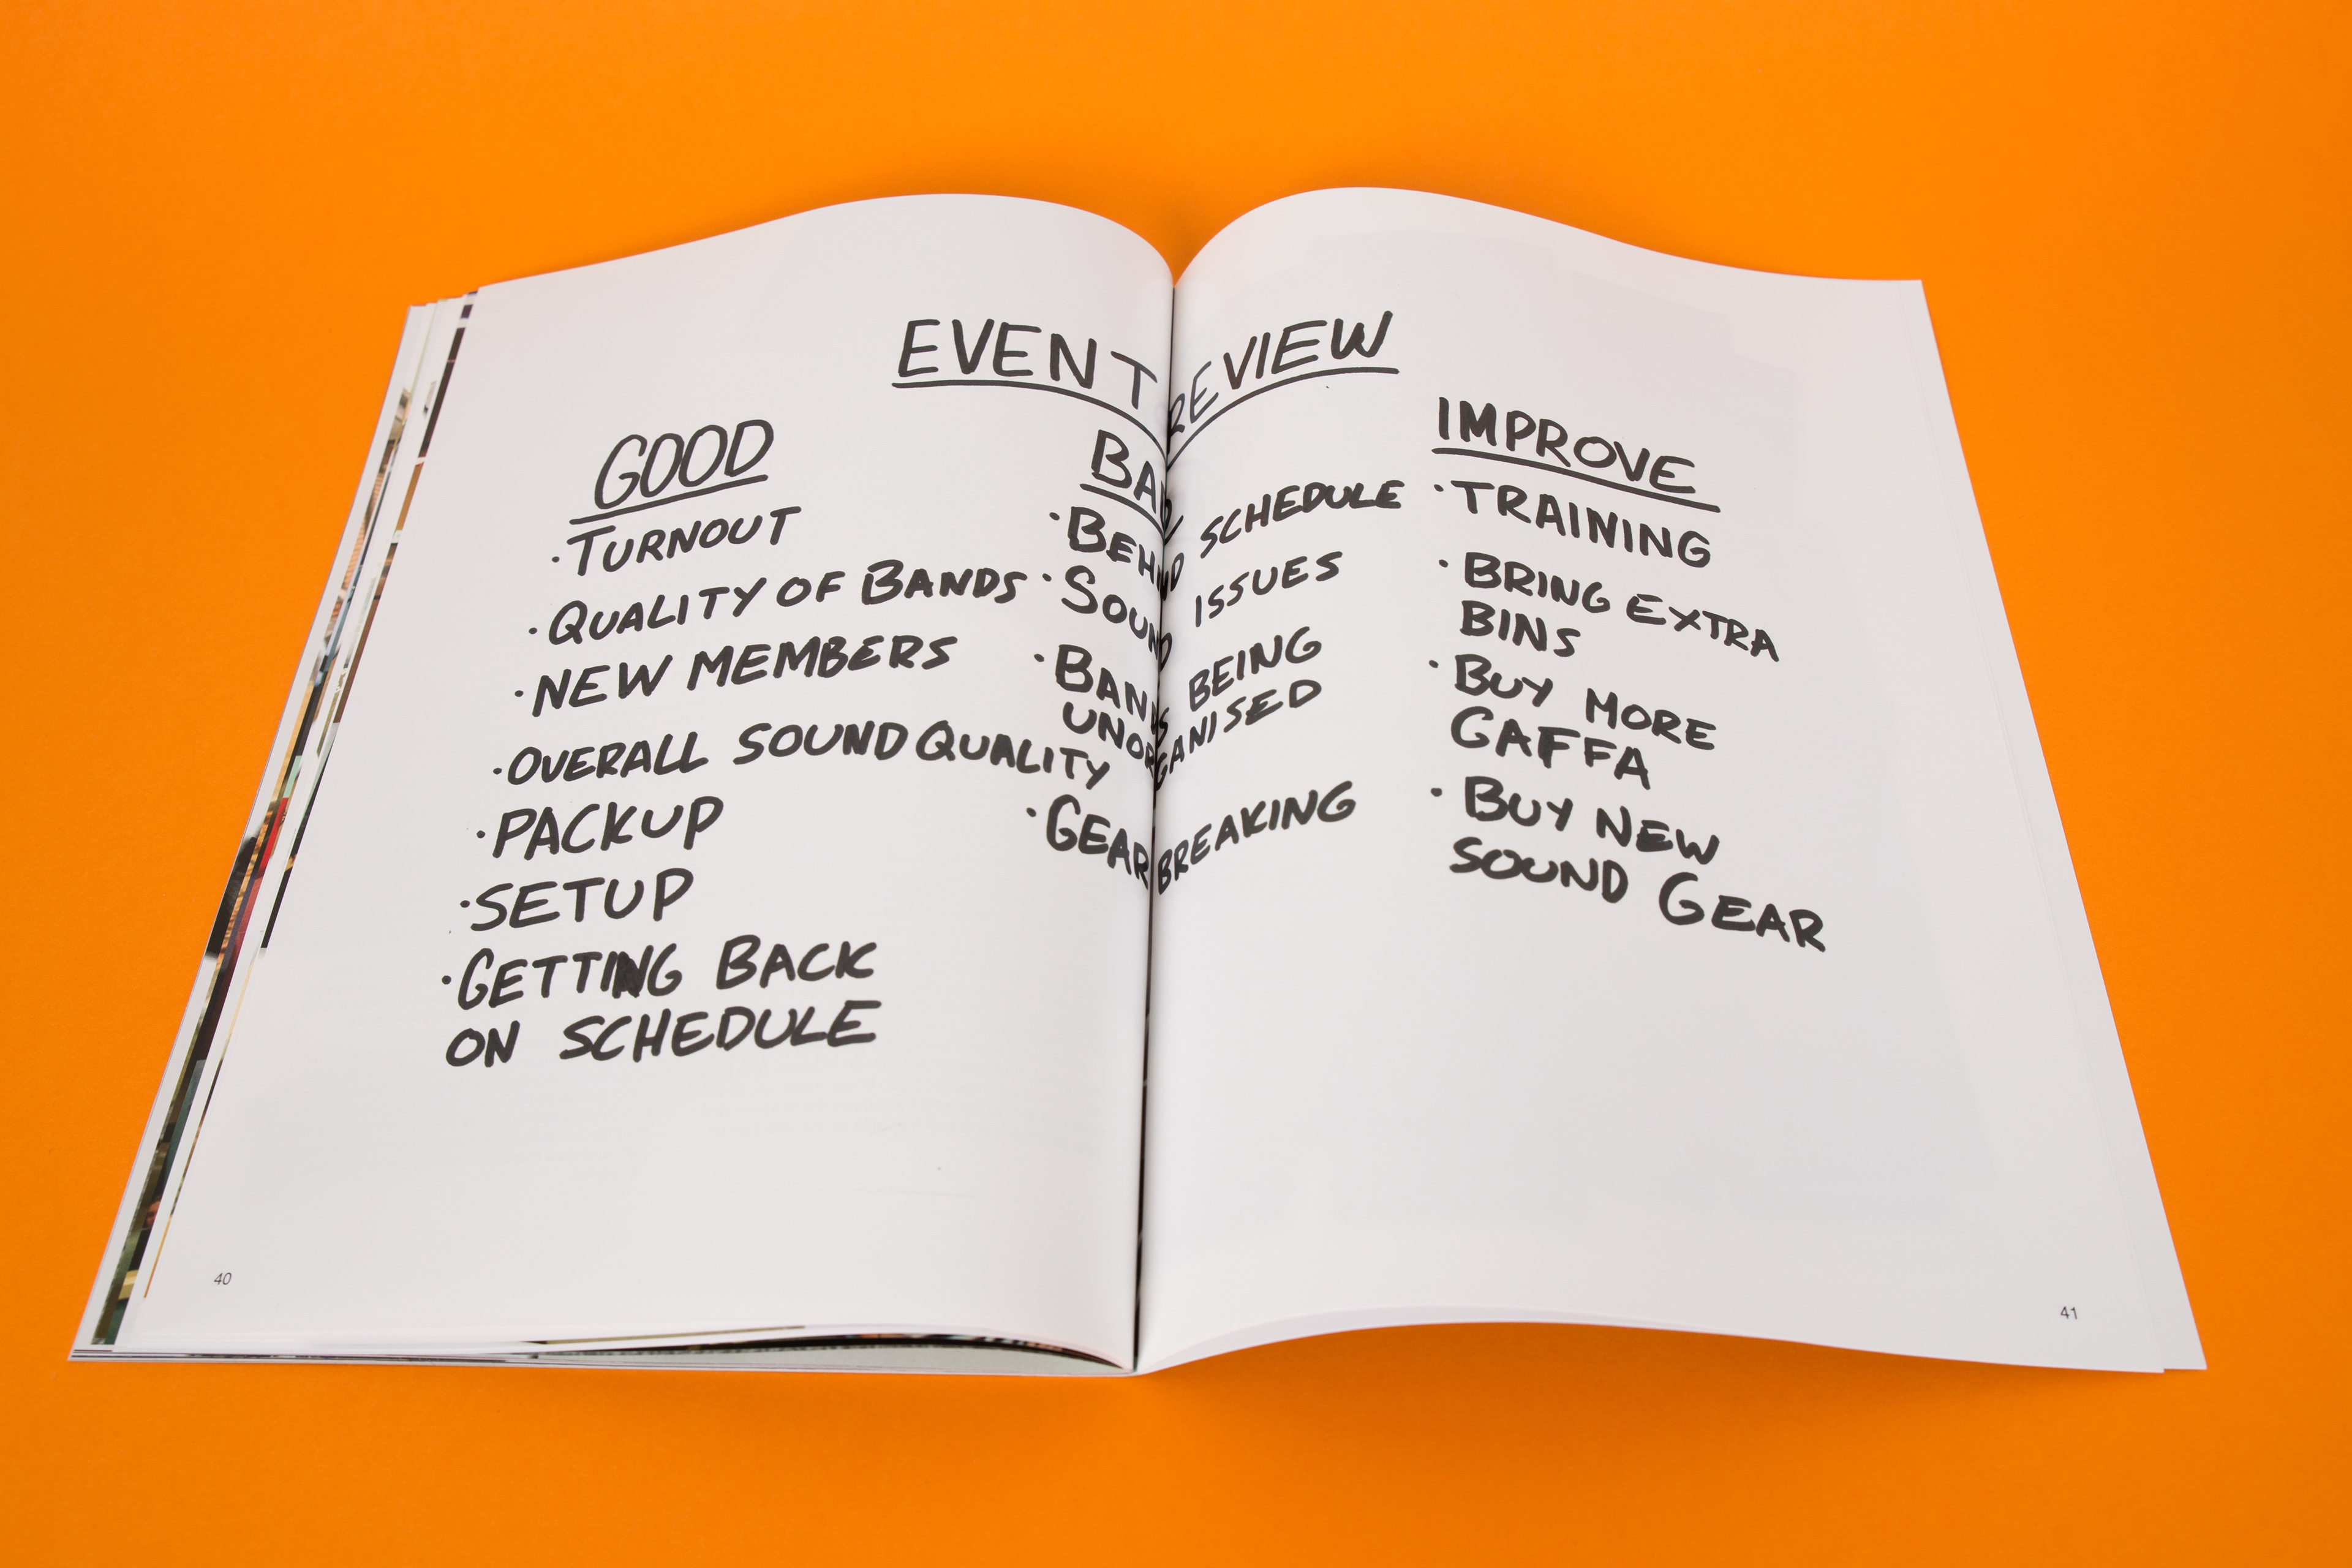 EVENT REVIEW
GOOD
· TURNOUT
· QUALITY OF BANDS
· NEW MEMBERS
· OVERALL SOUND QUALITY
· PACKUP
· SETUP
· GETTING BACK
ON SCHEDULE
BAD
· BEHIND SCHEDULE
· SOUND ISSUES
· BANDS BEING
UNORGANISED
· GEAR BREAKING
IMPROVE
· TRAINING
· BRING EXTRA
BINS
· BUY MORE
GAFFA
· BUY NEW
SOUND GEAR
40
41